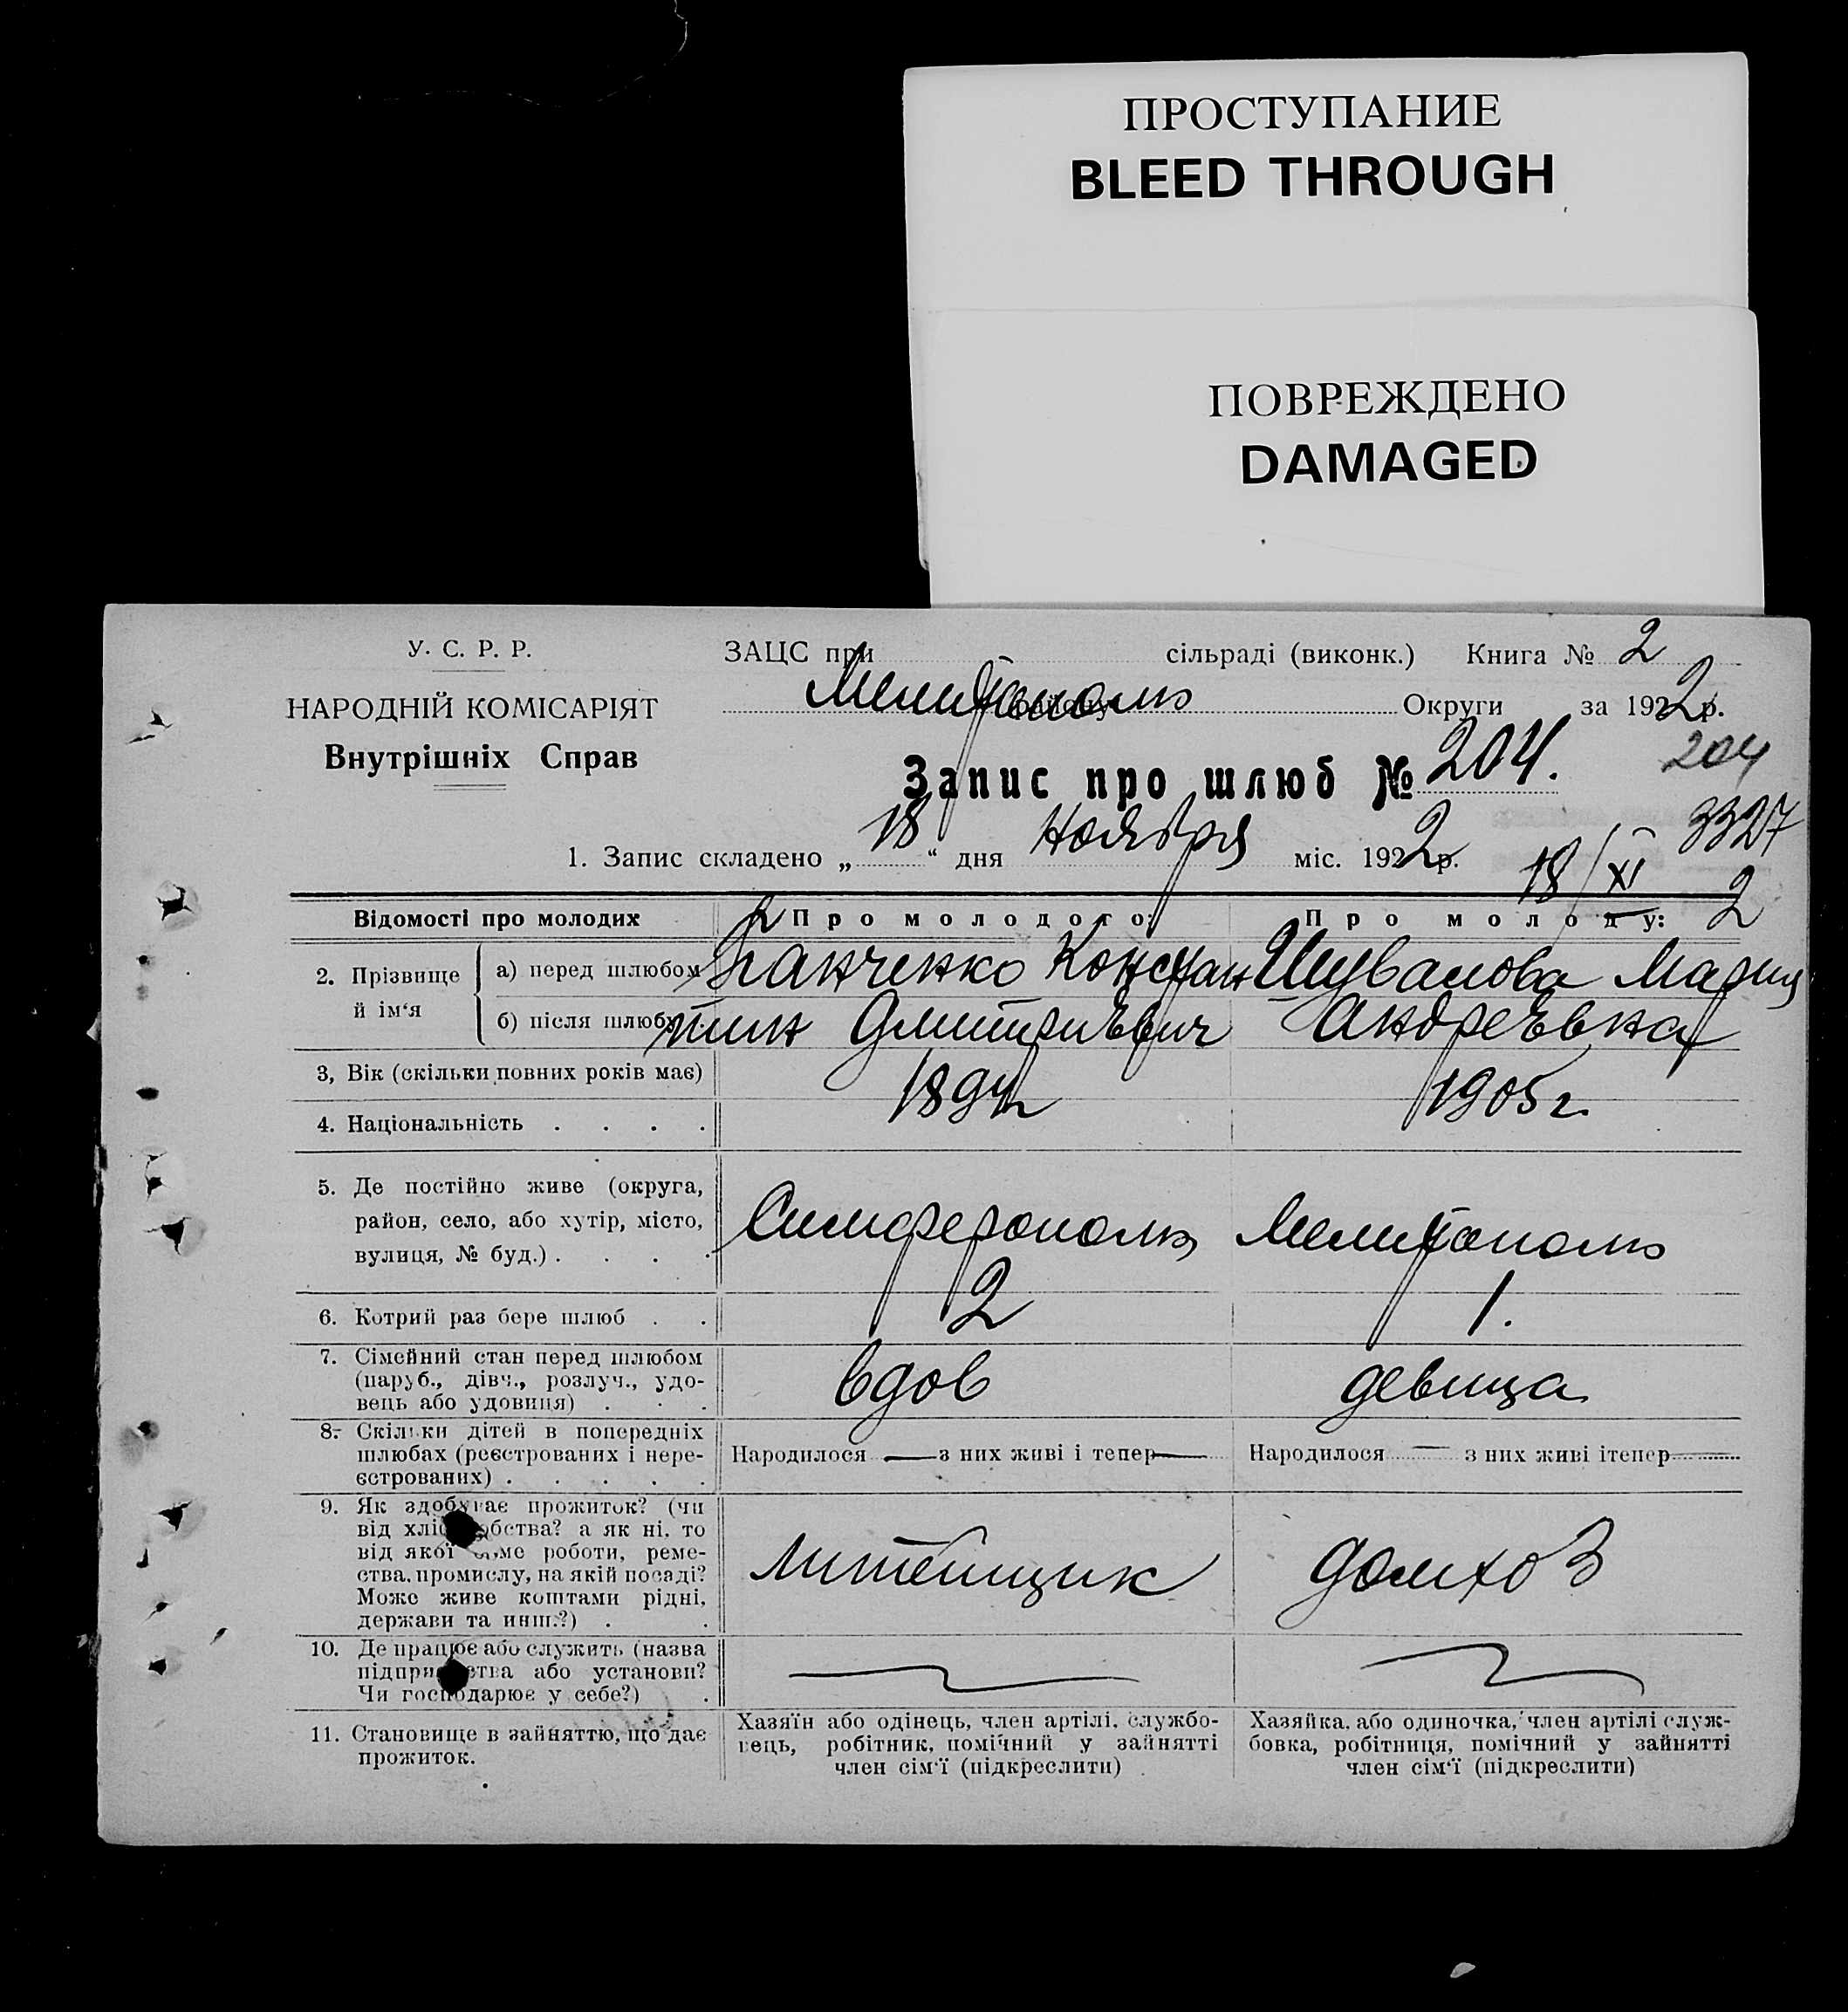 ПРОСТУПАНИЕ
BLEED THROUGH
ПОВРЕЖДЕНО
DAMAGED
У. С. Р. Р.
НАРОДНІЙ КОМІСАРІЯТ
Внутрішніх Справ
ЗАЦС при сільраді (виконк.) Книга № 2
Мелитополь Округи за 1922 р.
Запис про шлюб № 204.
204
3327
1. Запис складено „18“ дня Ноября міс. 1922 р.
18/XI 2
Відомості про молодих
Про молодого:
Про молоду:
2. Прізвище й ім‘я
а) перед шлюбом
б) після шлюбу
Констан
тин Дмитриевич
Шувалова Мария
Андреевна
3, Вік (скільки повних років має)
1905 г.
4. Національність . . . .
5. Де постійно живе (округа,
район, село, або хутір, місто,
вулиця, № буд.) . . . .
Симферополь
Мелитополь
6. Котрий раз бере шлюб . .
2
1.
7. Сімейний стан перед шлюбом
(паруб., дівч., розлуч., удо-
вець або удовиця) . . .
вдов
девица
8. Скільки дітей в попередніх
шлюбах (реєстрованих і нере-
єстрованих) . . . . .
Народилося — з них живі і тепер —
Народилося — з них живі ітепер
9. Як здобуває прожиток? (чи
від хліборобства? а як ні, то
від якої саме роботи, реме-
ства, промислу, на якій посаді?
Може живе коштами рідні,
держави та инш.?) . .
литейщик
домхоз
10. Де працює або служить (назва
підприємства або установи?
Чи господарює у себе?) .
11. Становище в зайняттю, що дає
прожиток.
Хазяїн або одінець, член артілі, службо-
вець, робітник, помічний у зайнятті
член сім‘ї (підкреслити)
Хазяйка, або одиночка, член артілі служ-
бовка, робітниця, помічний у зайнятті
член сім‘ї (підкреслити)